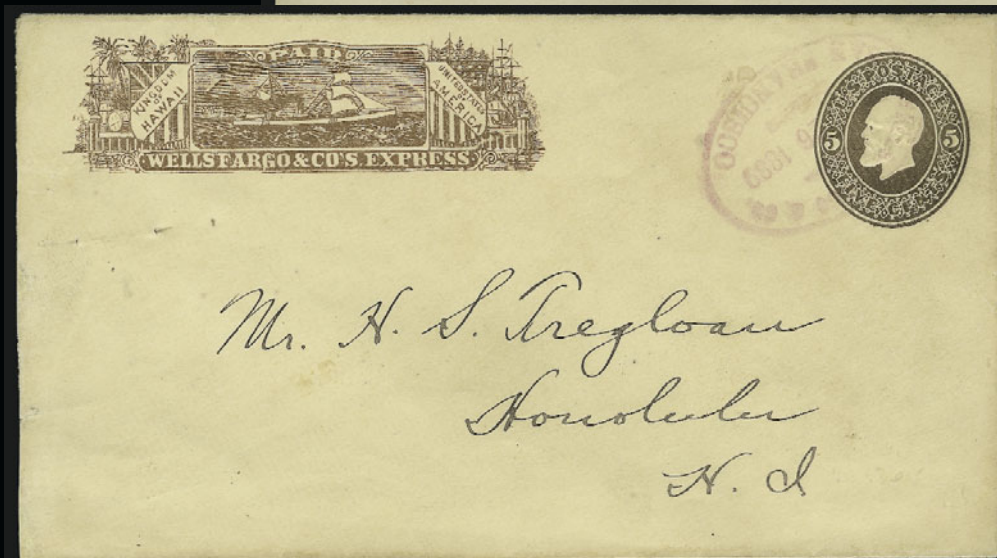 PAID
KINGDOM OF HAWAII
UNITED STATES AMERICA
WELLS FARGO & CO'S. EXPRESS.
U.S. POSTAGE
5 5
FIVE CENTS
Mr. H. S. Tregloan
Honolulu
H. I